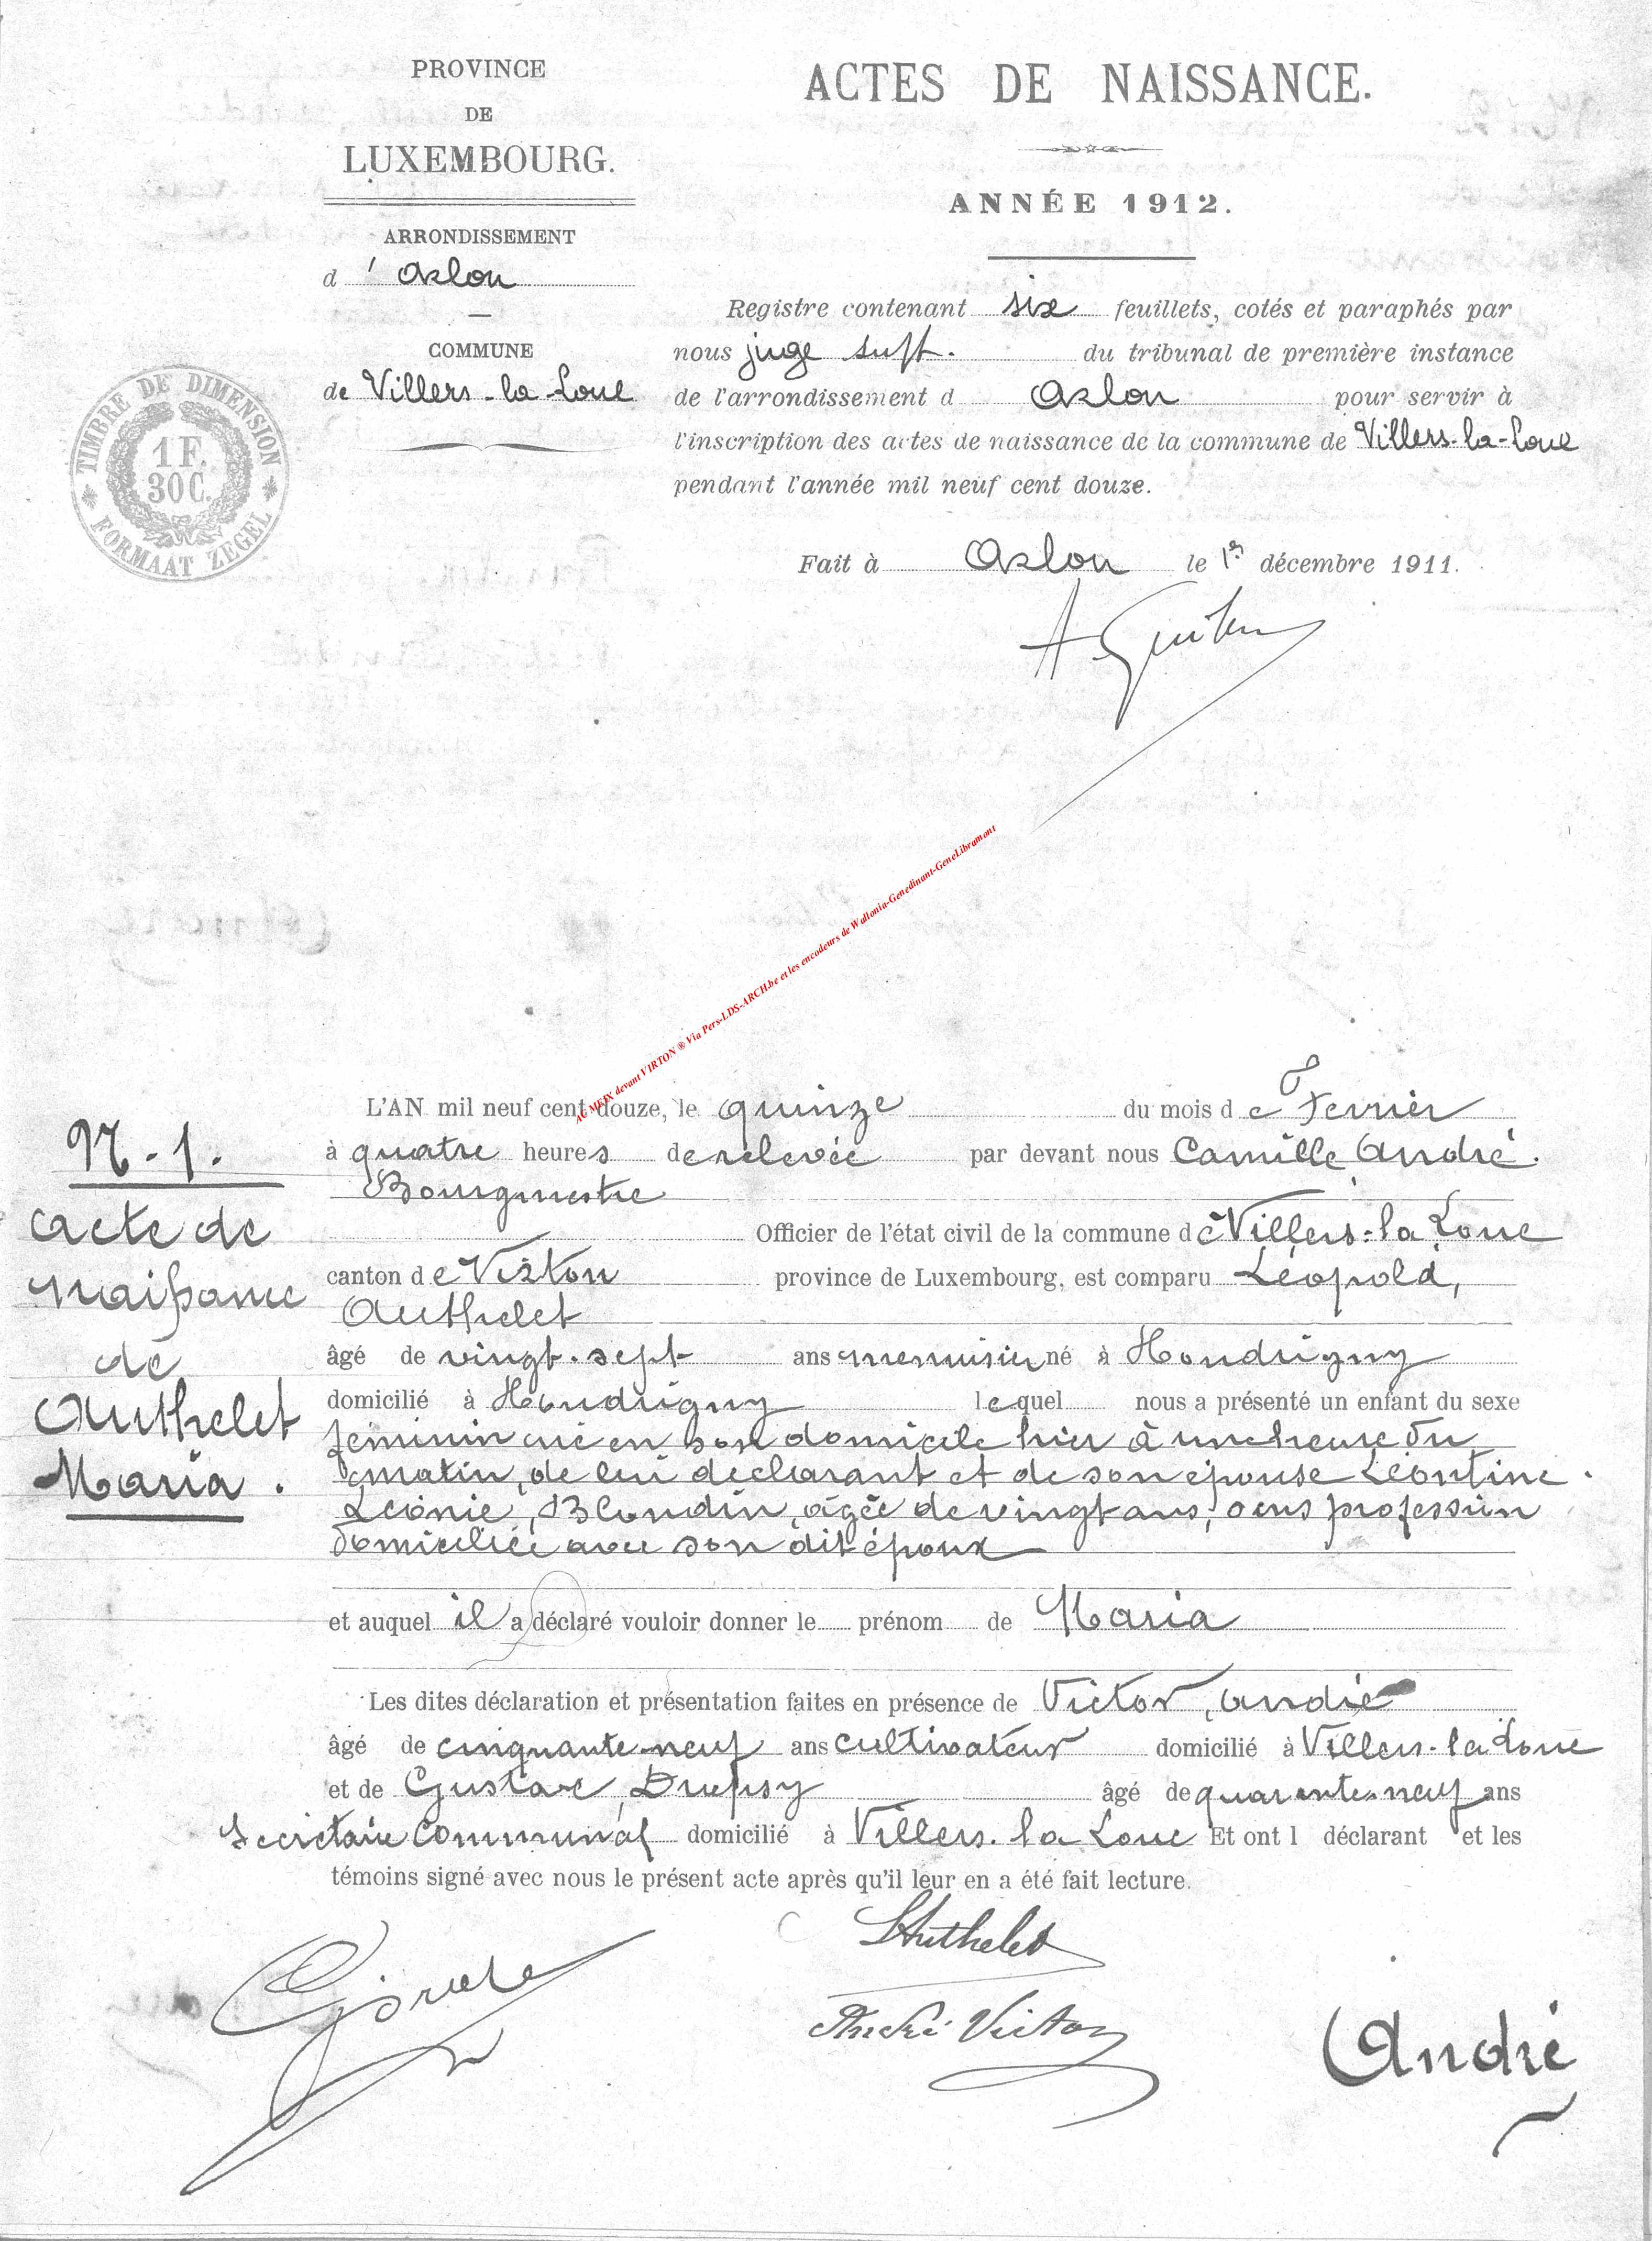 PROVINCE
DE
LUXEMBOURG.
ARRONDISSEMENT
d'Arlon
COMMUNE
de Villers-la-Loue
TIMBRE DE DIMENSION
1 F.
30 C.
FORMAAT ZEGEL
ACTES DE NAISSANCE.
ANNÉE 1912.
Registre contenant six feuillets, cotés et paraphés par
nous juge supt. du tribunal de première instance
de l'arrondissement d Arlon pour servir à
l'inscription des actes de naissance de la commune de Villers-la-Loue
pendant l'année mil neuf cent douze.
Fait à Arlon le 1er décembre 1911.
AC MEIX devant VIRTON ® Via Pers-LDS-ARCH.be et les encodeurs de Wallonia-Genedinant-GeneLibramont
N-1.
Acte de
naissance
de
Authelet
Maria.
L'AN mil neuf cent douze, le quinze du mois de Fevrier
à quatre heures de relevée par devant nous Camille André.
Bourgmestre
Officier de l'état civil de la commune de Villers-la Loue
canton de Virton province de Luxembourg, est comparu Léopold,
Authelet
âgé de vingt-sept ans menuisier né à Houdrigny
domicilié à Houdrigny lequel nous a présenté un enfant du sexe
féminin né en son domicile hier à une heure du
matin, de lui déclarant et de son épouse Léontine
Léonie, Blondin, âgée de vingt ans, sans profession
domiciliée avec son dit époux
et auquel il a déclaré vouloir donner le prénom de Maria
Les dites déclaration et présentation faites en présence de Victor, André
âgé de cinquante-neuf ans cultivateur domicilié à Villers-la Loue
et de Gustave, Drupsy âgé de quarante-neuf ans
Secrétaire Communal domicilié à Villers-la Loue Et ont l déclarant et les
témoins signé avec nous le présent acte après qu'il leur en a été fait lecture.
LAuthelet
André Victor
André